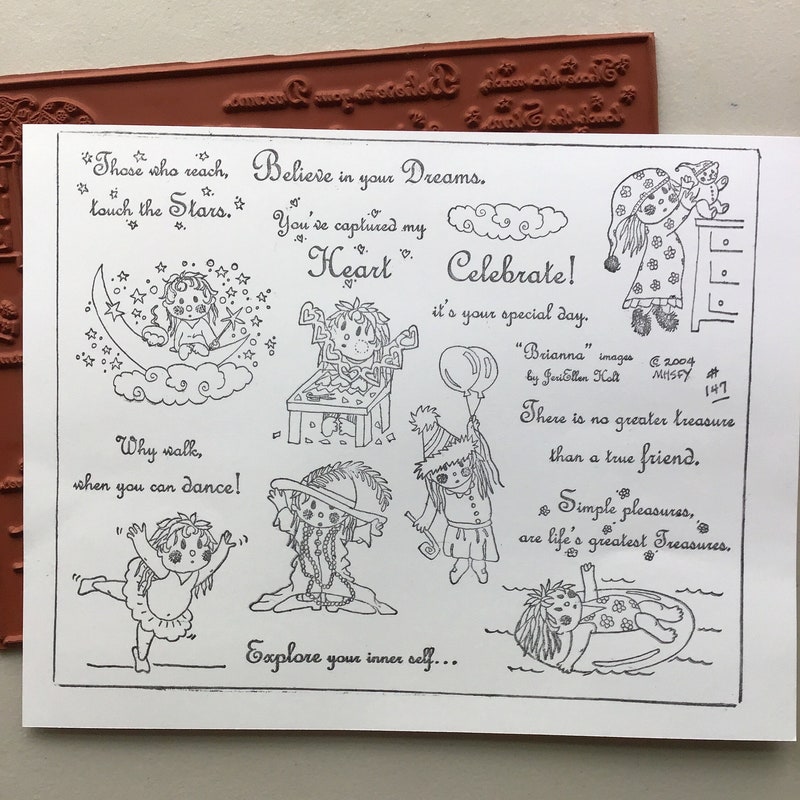 Those who reach,
touch the Stars.
Believe in your Dreams.
You've captured my
Heart
Celebrate!
it's your special day.
"Brianna" images
by JeriEllen Holt
© 2004
MHSFY
#
147
There is no greater treasure
than a true friend.
Why walk,
when you can dance!
Simple pleasures,
are life's greatest Treasures.
Explore your inner self...
Believe in your Dreams
Those who reach,
touch the Stars.